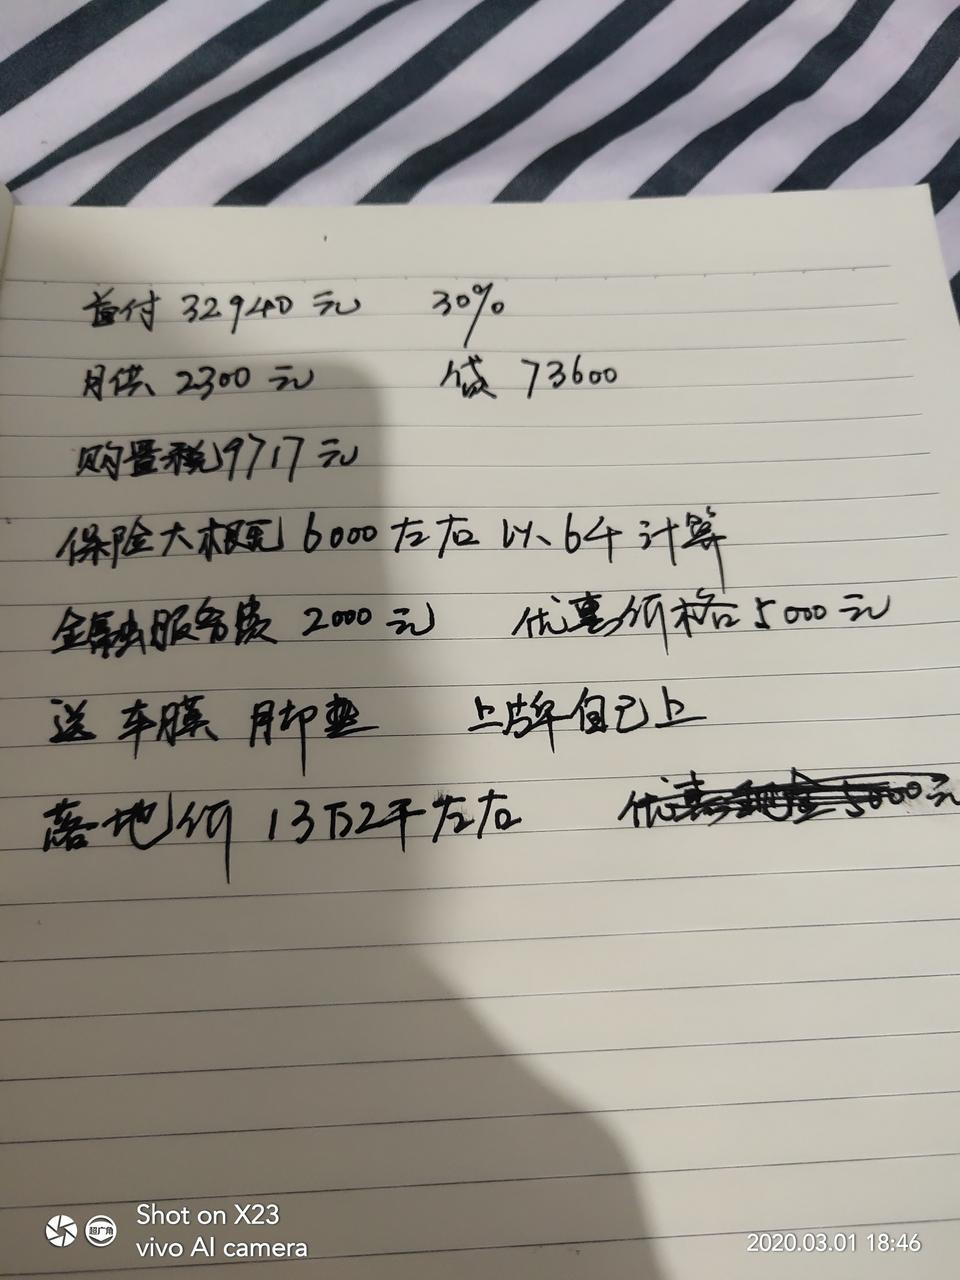 首付 32940元 30%
月供 2300元 贷 73600
购置税 9717元
保险大概 6000左右 以6千计算
金融服务费 2000元 优惠价格5000元
送 车膜 脚垫 上牌自己上
落地价 13万2千左右 优惠 5000元
超广角
Shot on X23
vivo AI camera
2020.03.01 18:46